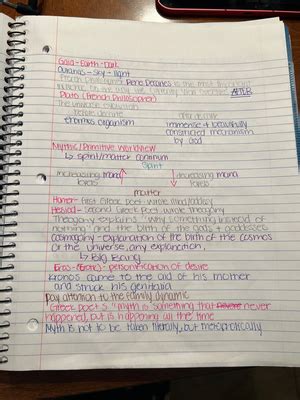 Gaia - Earth - Dark
Ouranos - sky - light
French philosopher Rene Descartes is the most important
AFTER
Plato (French Philosopher)
The universe explained
before decarte
enormous organism
immense + beautifully
constructed mechanism
by God
Mythic/Primitive Worldview
↳ spirit/matter continuum
Spirit
increasing mana
levels
decreasing mana
levels
matter
Homer - first Greek poet - wrote Iliad/Odyssey
Hesiod - second Greek poet - wrote Theogony
Theogony explains "why something instead of
nothing" and the birth of the gods + goddesses
cosmogony - explanation of the birth of the cosmos
or the universe, any explanation.
↳ Big Bang
Eros - (Erotic) - personification of desire
Kronos came to the aid of his mother
and struck his genitalia
pay attention to the family dynamic
Greek poet's "myth is something that never
happened, but is happening all the time
Myth is not to be taken literally, but metaphorically